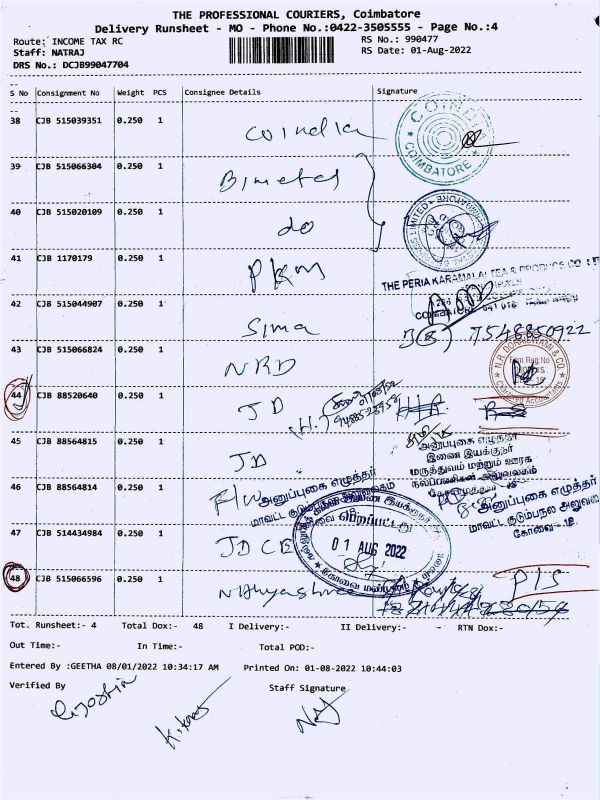 THE PROFESSIONAL COURIERS, Coimbatore
Delivery Runsheet - MO - Phone No.:0422-3505555 - Page No.:4
Route: INCOME TAX RC RS No.: 990477
Staff: NATRAJ RS Date: 01-Aug-2022
DRS No.: DCJB99047704
S No Consignment No Weight PCS Consignee Details Signature
38 CJB 515039351 0.250 1 Coindia COINDIA COIMBATORE
39 CJB 515066304 0.250 1 Bimetal
40 CJB 515020109 0.250 1 do LIMITED COIMBATORE
41 CJB 1170179 0.250 1 PKM
THE PERIA KARAMALAI TEA & PRODUCE CO. LTD
42 CJB 515044907 0.250 1 Sima
7548850922
43 CJB 515066824 0.250 1 NRD N.R. DORAISWAMI & CO. Firm Reg.No Chartered Accountants
44 CJB 88520640 0.250 1 JD
45 CJB 88564815 0.250 1 JD
அனுப்புகை எழுத்தர்
இணை இயக்குநர்
மருத்துவம் மற்றும் ஊரக
நலப்பணிகள் அலுவலகம்
46 CJB 88564814 0.250 1 F/W அனுப்புகை எழுத்தர்
மாவட்ட
அனுப்புகை எழுத்தர்
மாவட்ட குடும்பநல
கோவை-18
47 CJB 514434984 0.250 1 JD CB
பெறப்பட்டது
01 AUG 2022
கோவை மண்டலம்
48 CJB 515066596 0.250 1 Nithyashree PIS
Tot. Runsheet:- 4 Total Dox:- 48 I Delivery:- II Delivery:- RTN Dox:-
Out Time:- In Time:- Total POD:-
Entered By :GEETHA 08/01/2022 10:34:17 AM Printed On: 01-08-2022 10:44:03
Verified By Staff Signature